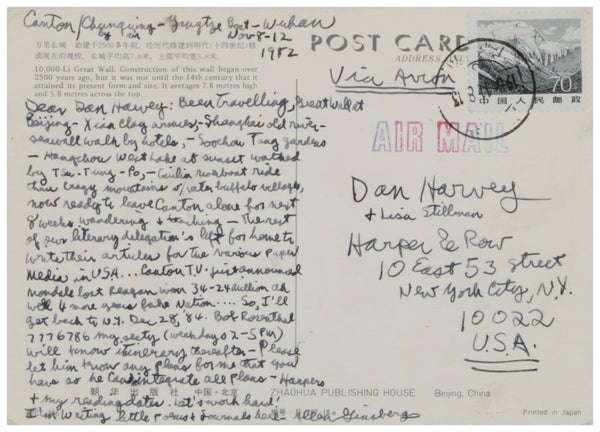 Canton/Chungking - Yangtze Boat - Wuhan
by air Nov 8-12
1982
万里长城 始建于2500多年前，经历代修建到明代（十四世纪）修
成现在的规模。长城平均高7.8米，上部平均宽5.8米。
10,000-Li Great Wall. Construction of this wall began over
2500 years ago, but it was not until the 14th century that it
attained its present form and size. It averages 7.8 metres high
and 5.8 metres across the top.
Dear Dan Harvey: Been travelling, Great Wall at
Beijing - Xian clay armies, - Shanghai old river-
seawall walk by hotels, - Soochow Tang gardens
- Hangchow West Lake at sunset watched
by Tsu-Tung-Po, - Guilin riverboat ride
thru crazy mountains & water buffalo villages,
now ready to leave Canton alone for next
8 weeks wandering & teaching - The rest
of our literary delegation's left for home to
write their articles for the various Paper
Media in USA... Canton T.V. just announced
Mondale lost Reagan won 34-24 million ah
well 4 more years fake Nation.... So, I'll
get back to N.Y. Dec 28, '84. Bob Rosenthal
7776786 my secty (weekdays 2-5 PM)
will know itinerary thereafter - Please
let him know any plans for me that you
have so he can integrate all plans - Harpers
& my reading dates. Let's work hard!
I'm writing little poems & journals here - Allen Ginsberg
朝华出版社 中国·北京 ZHAOHUA PUBLISHING HOUSE Beijing, China
Printed in Japan
POST CARD
ADDRESS ONLY
Via Avion
AIR MAIL
70
中国人民邮政
Dan Harvey
& Lisa Stillman
Harper & Row
10 East 53 Street
New York City, N.Y.
10022
U.S.A.